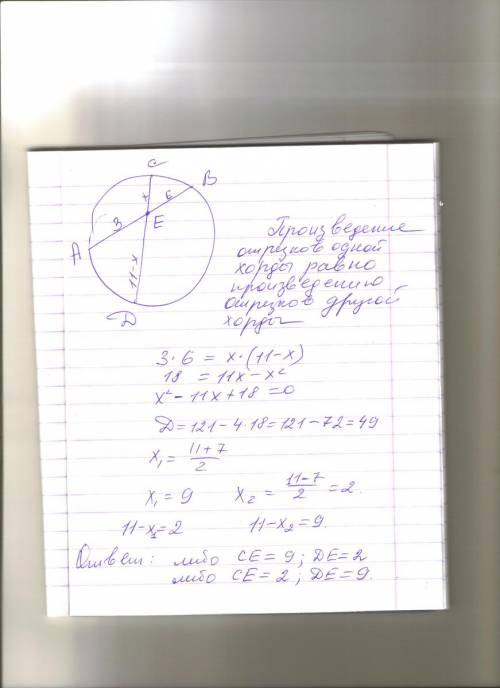 C
B
x
6
3
E
A
11-x
D
Произведение
отрезков одной
хорды равно
произведению
отрезков другой
хорды
3·6 = x·(11-x)
18 = 11x-x²
x²-11x+18=0
D=121-4·18=121-72=49
x₁= 11+7/2
x₁=9 x₂= 11-7/2 =2.
11-x₁=2 11-x₂=9.
Ответ: либо CE=9; DE=2
либо CE=2; DE=9.